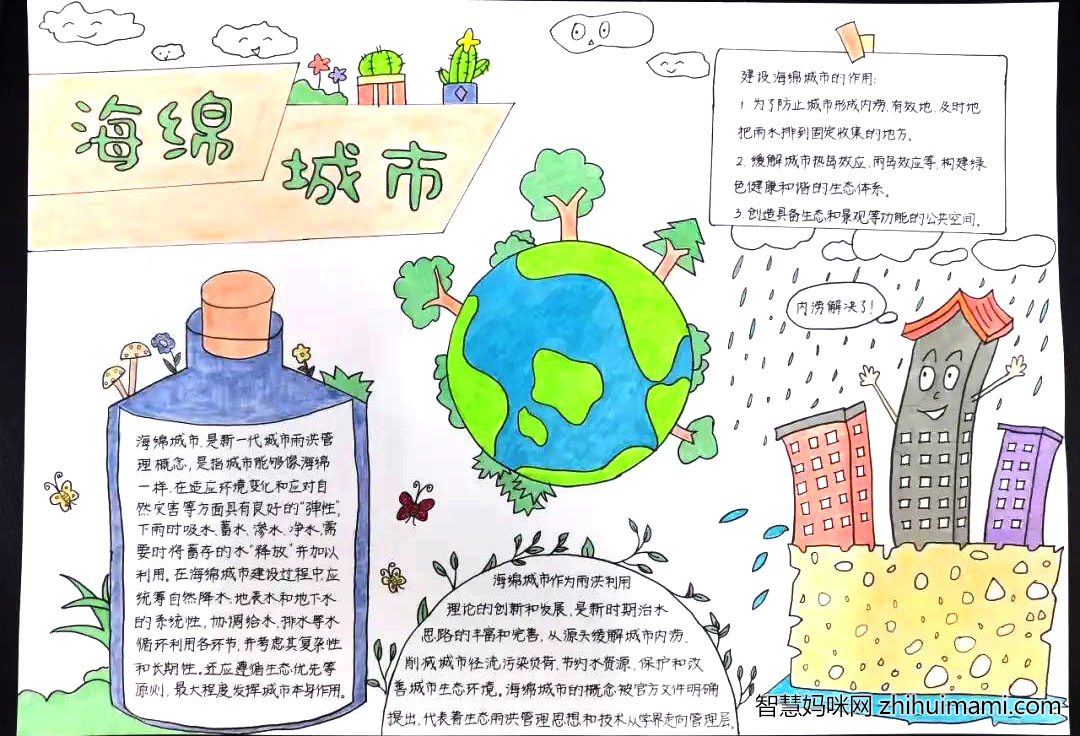 海绵
城市
建设海绵城市的作用:
1. 为了防止城市形成内涝,有效地、及时地
把雨水排到固定收集的地方。
2. 缓解城市热岛效应、雨岛效应等,构建绿
色健康和谐的生态体系。
3. 创造具备生态和景观等功能的公共空间。
内涝解决了!
海绵城市,是新一代城市雨洪管
理概念,是指城市能够像海绵
一样,在适应环境变化和应对自
然灾害等方面具有良好的“弹性”,
下雨时吸水、蓄水、渗水、净水,需
要时将蓄存的水“释放”并加以
利用。在海绵城市建设过程中应
统筹自然降水、地表水和地下水
的系统性,协调给水、排水等水
循环利用各环节,并考虑其复杂性
和长期性。还应遵循生态优先等
原则,最大程度发挥城市本身作用。
海绵城市作为雨洪利用
理论的创新和发展,是新时期治水
思路的丰富和完善,从源头缓解城市内涝,
削减城市径流污染负荷、节约水资源、保护和改
善城市生态环境。海绵城市的概念被官方文件明确
提出,代表着生态雨洪管理思想和技术从学界走向管理层。
智慧妈咪网 zhihuimami.com